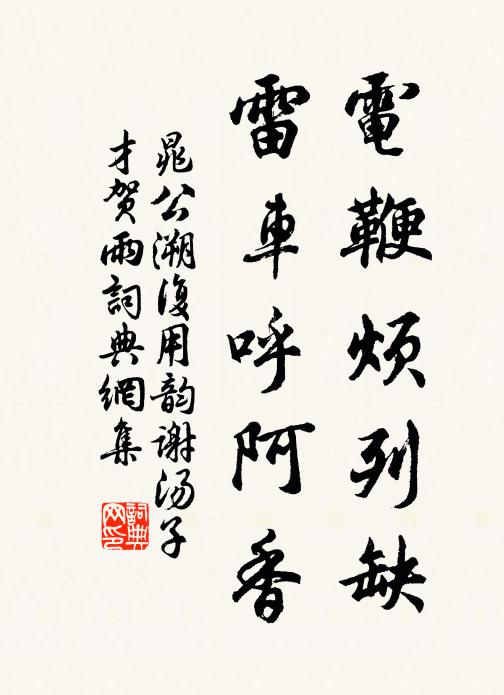 電鞭烦列缺
雷車呼阿香
晁公溯復用韵谢汤子
才贺雨詞典網集
詞典网印